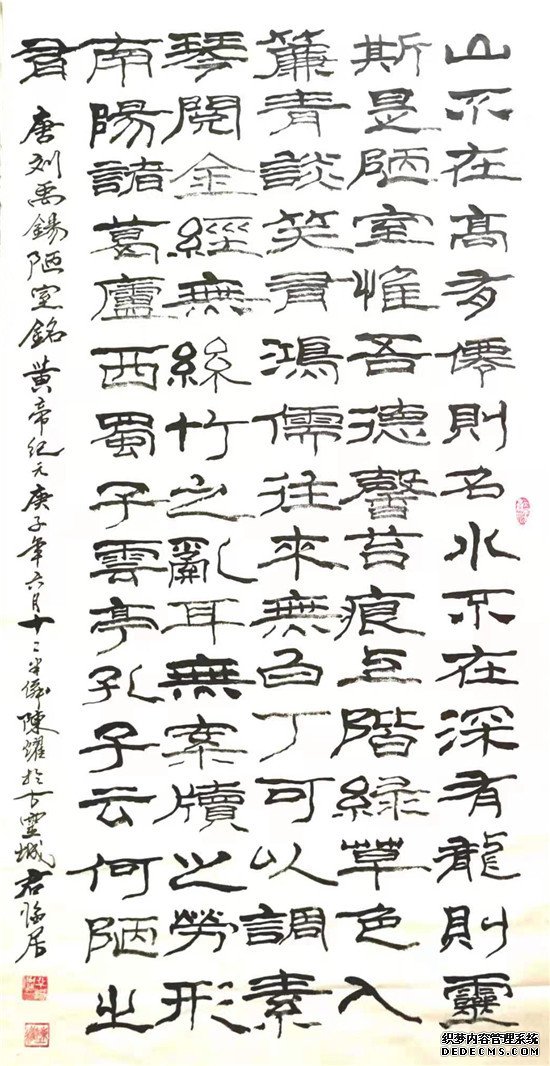 山不在高有僊則名水不在深有龍則靈
斯是陋室惟吾德馨苔痕上階綠草色入
簾青談笑有鴻儒往來無白丁可以調素
琴閱金經無絲竹之亂耳無案牘之勞形
南陽諸葛廬西蜀子雲亭孔子云何陋之
有
唐刘禹錫陋室銘黄帝纪元庚子年六月十二半僊陳耀於古靈城君臨居
织梦内容管理系统
DEDECMS.COM